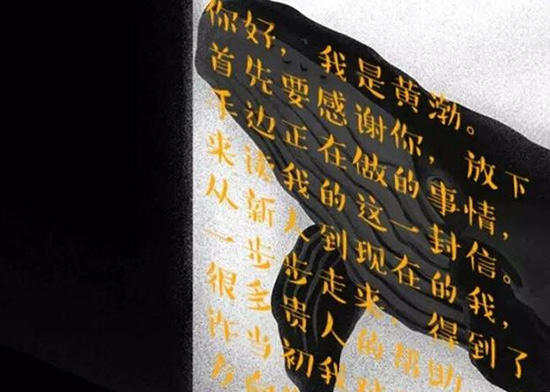 你好，我是黄渤。
首先要感谢你，放下
手边正在做的事情，
来读我的这一封信。
从新人到现在的我，
一步步走来，得到了
很多贵人的帮助。
当初我